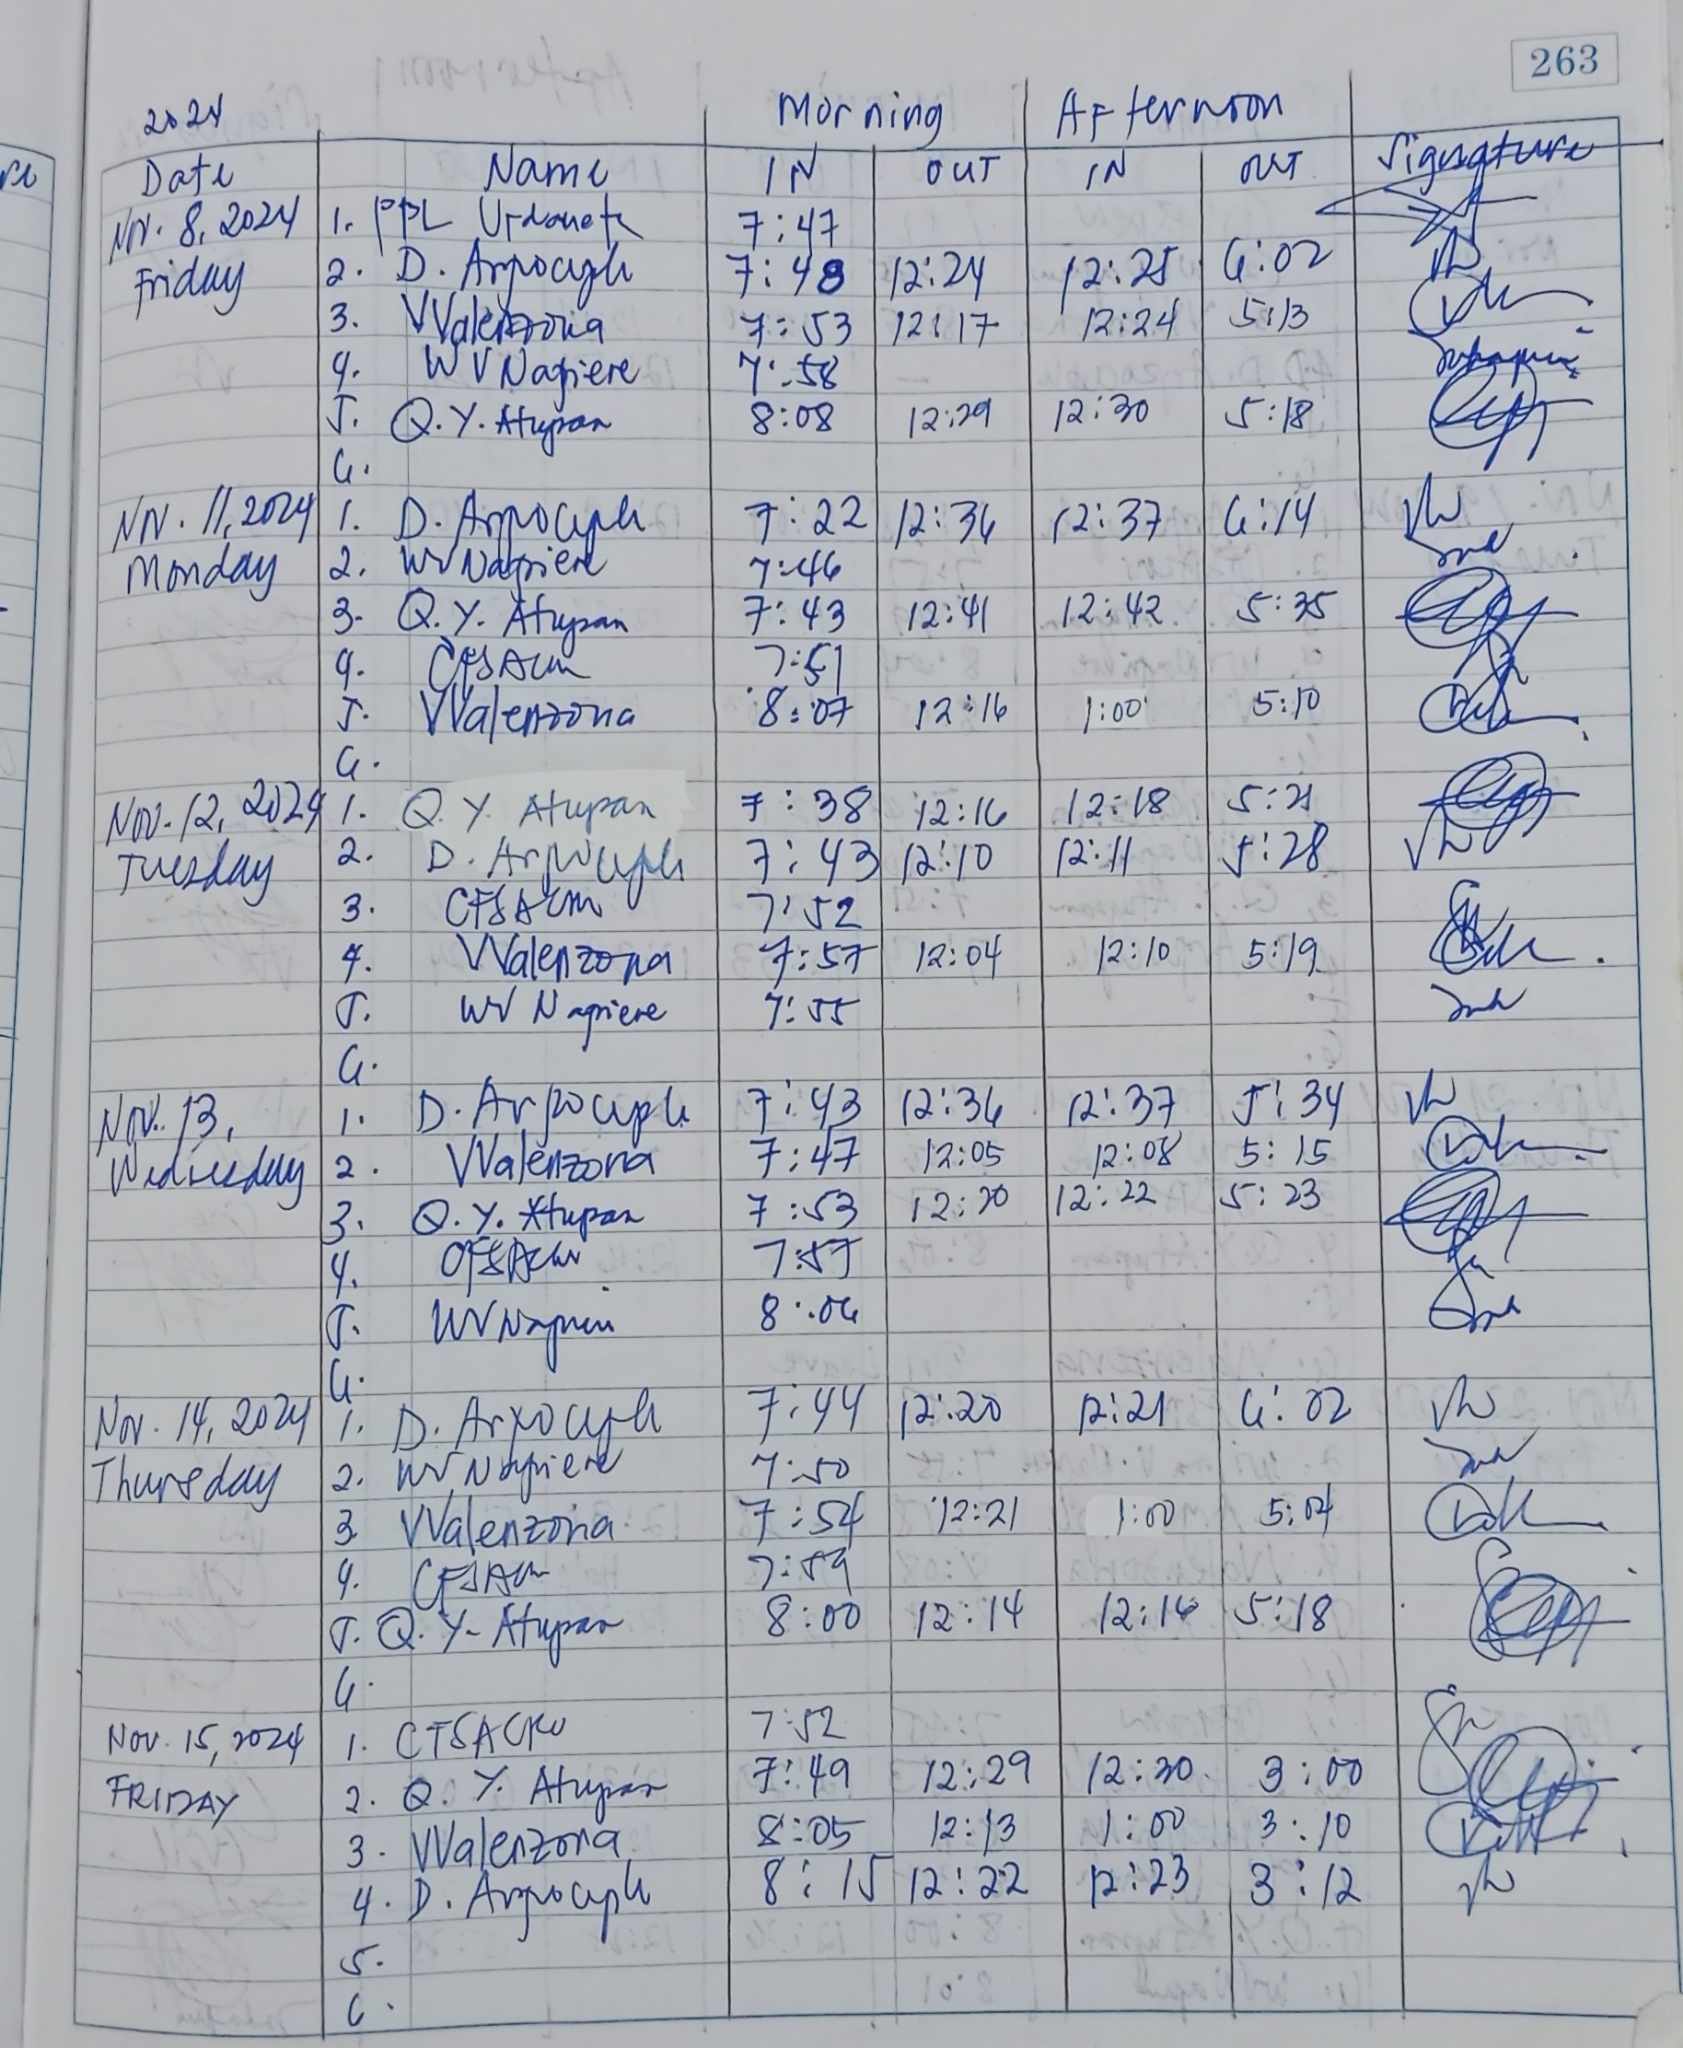 263
2024 Morning Afternoon
Date Name IN OUT IN OUT Signature
Nov. 8, 2024 1. PPL 7:47
Friday 2. D. 7:48 12:24 12:25 6:02
3. VValenzona 7:53 12:17 12:24 5:13
4. WV Napiere 7:58
5. Q. Y. Atupan 8:08 12:29 12:30 5:18
6.
Nov. 11, 2024 1. D. 7:22 12:36 12:37 6:14
Monday 2. WV Napiere 7:46
3. Q. Y. Atupan 7:43 12:41 12:42 5:35
4. 7:51
5. VValenzona 8:07 12:16 1:00 5:10
6.
Nov. 12, 2024 1. Q. Y. Atupan 7:38 12:16 12:18 5:21
Tuesday 2. D. 7:43 12:10 12:11 5:28
3. 7:52
4. VValenzona 7:57 12:04 12:10 5:19
5. WV Napiere 7:55
6.
Nov. 13, 1. D. 7:43 12:36 12:37 5:34
Wednesday 2. VValenzona 7:47 12:05 12:08 5:15
3. Q. Y. Atupan 7:53 12:20 12:22 5:23
4. 7:57
5. WV 8:06
6.
Nov. 14, 2024 1. D. 7:44 12:20 12:21 6:02
Thursday 2. WV Napiere 7:50
3 VValenzona 7:54 12:21 1:00 5:04
4. 7:59
5. Q. Y. Atupan 8:00 12:14 12:16 5:18
6.
Nov. 15, 2024 1. 7:52
FRIDAY 2. Q. Y. Atupan 7:49 12:29 12:30 3:00
3. VValenzona 8:05 12:13 1:00 3:10
4. D. 8:15 12:22 12:23 3:12
5.
6.